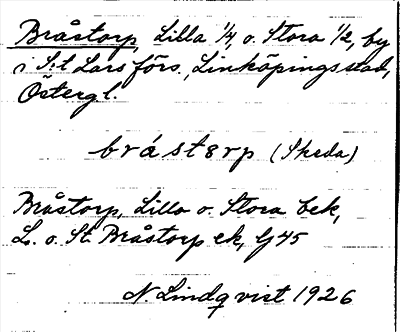 Bråstorp, Lilla 1/4, o. Stora 1/2, by
i S:t Lars förs., Linköpings stad,
Östergl.
bråstɘrp (Skeda)
Bråstorp, Lilla o. Stora bek,
L. o. St. Bråstorp ek, GJ45
N. Lindqvist 1926